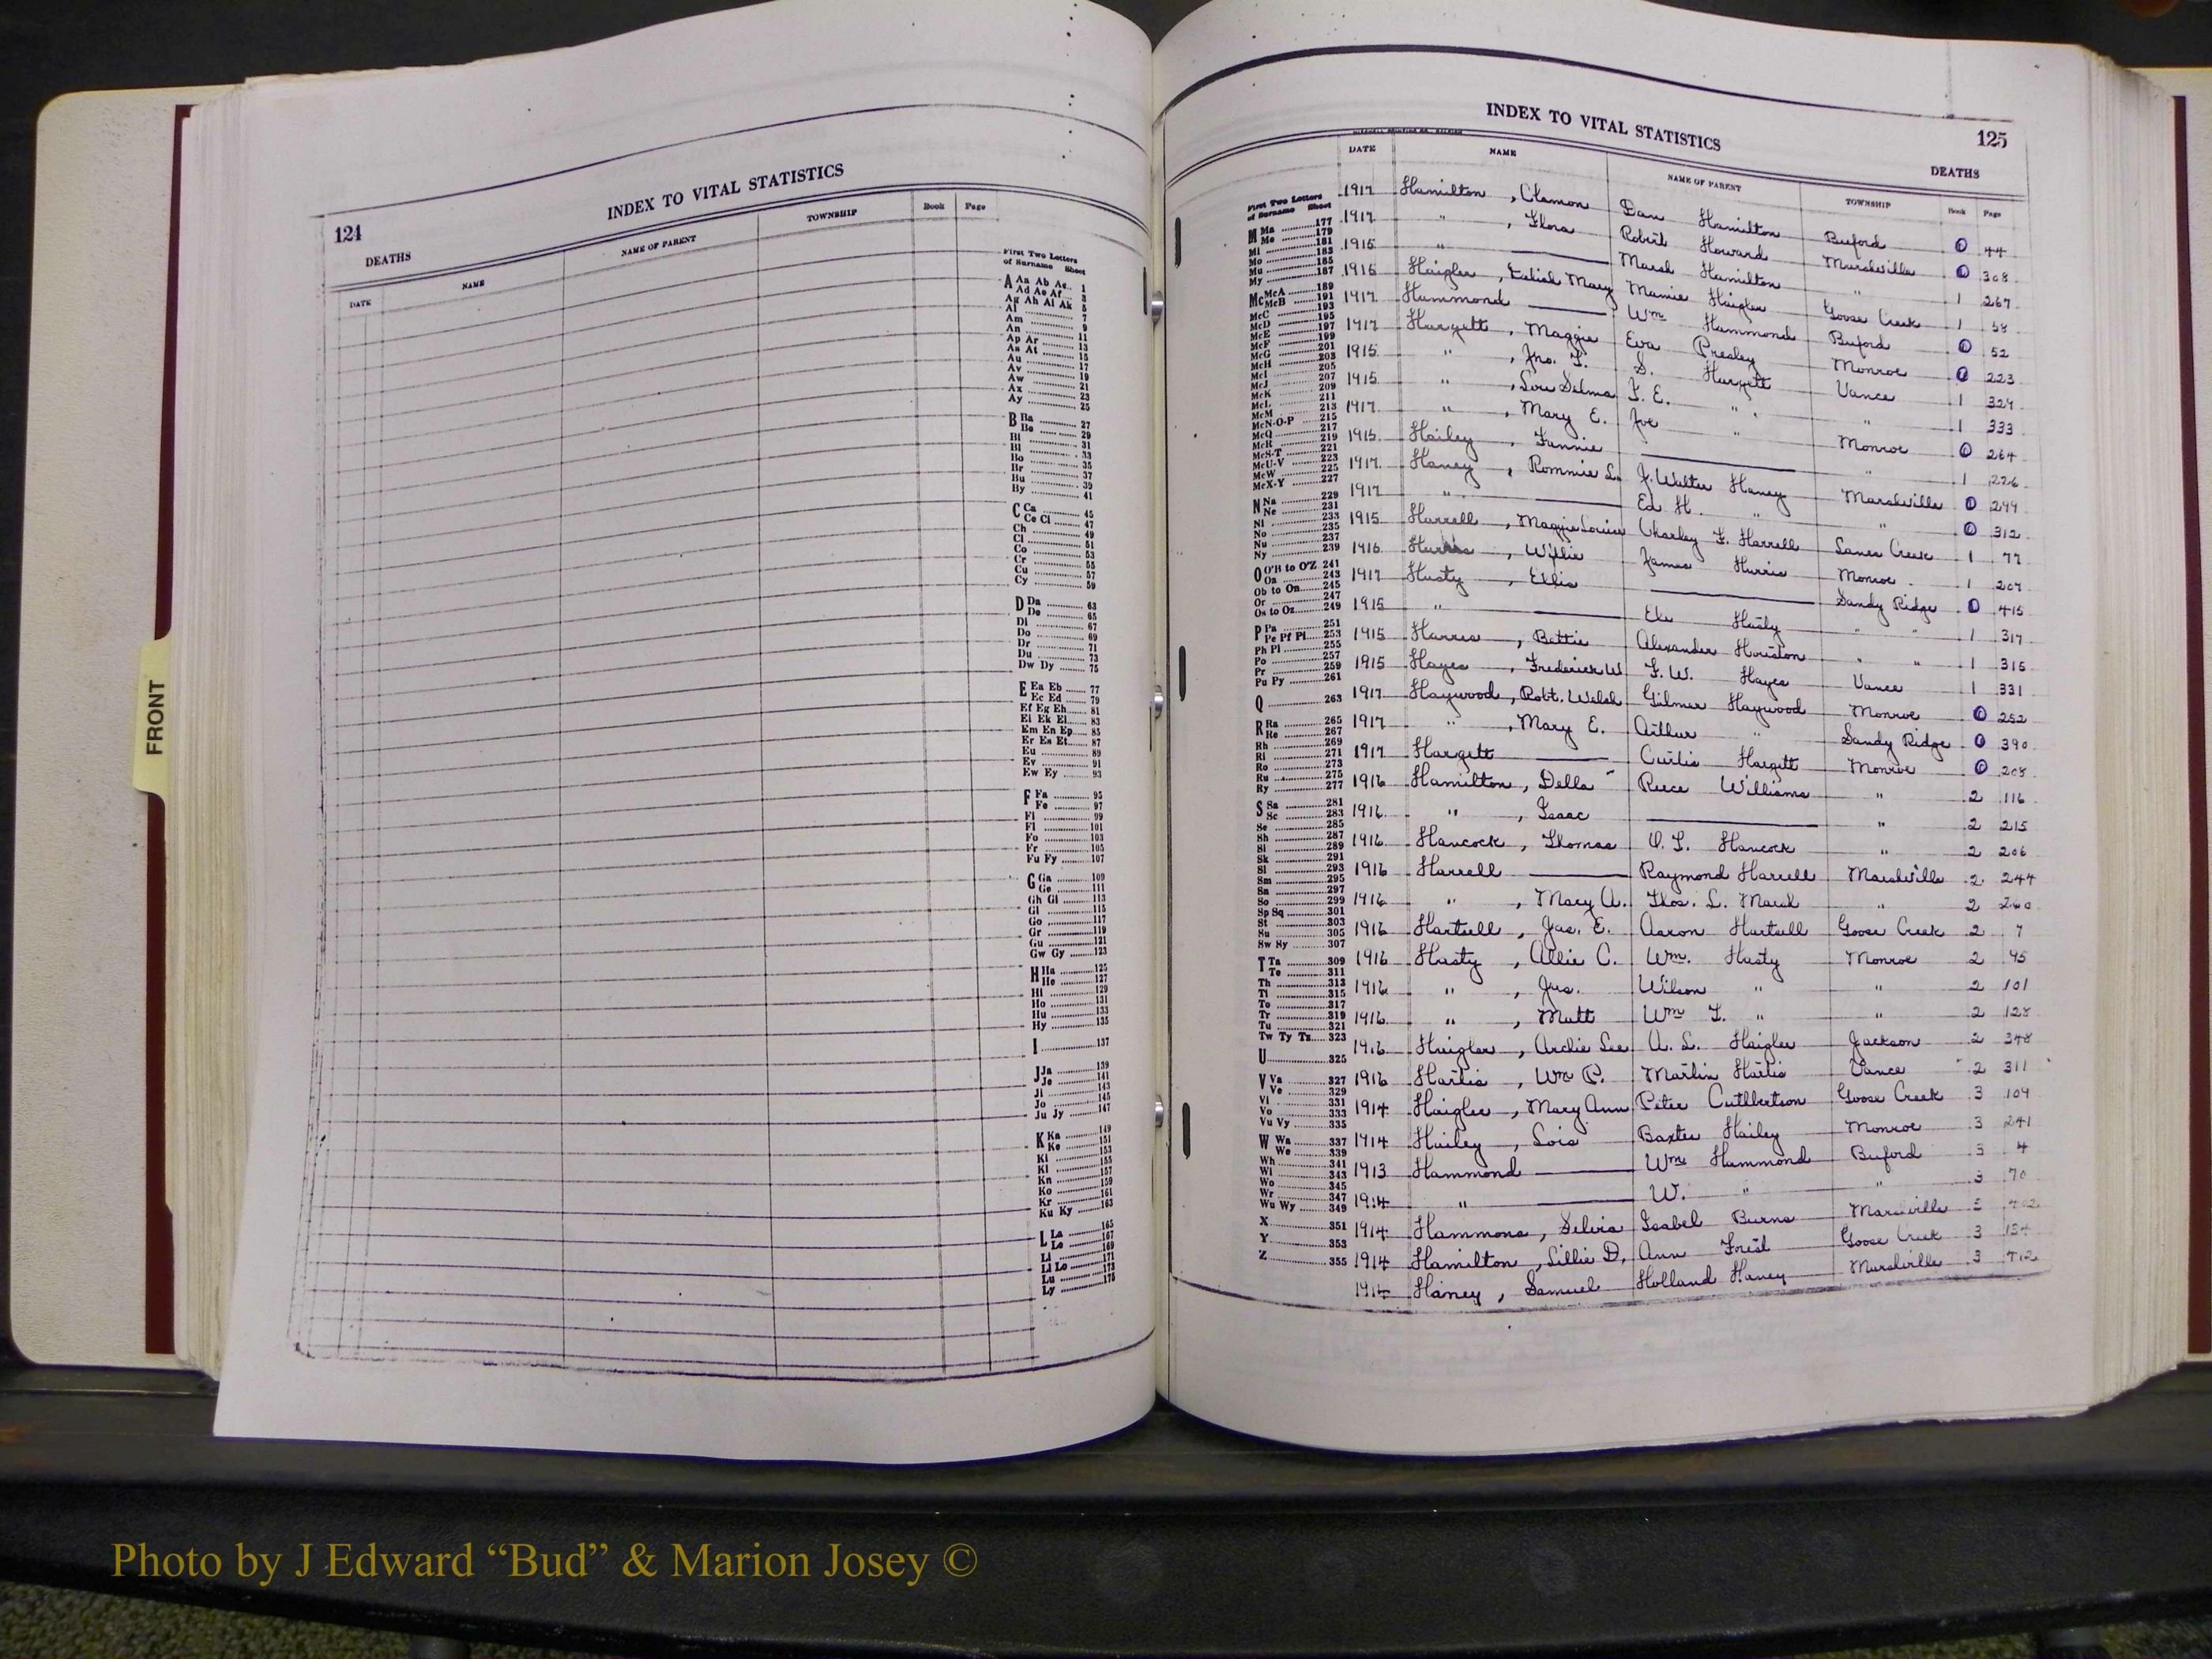 FRONT
124
INDEX TO VITAL STATISTICS
DEATHS
DATE NAME NAME OF PARENT TOWNSHIP Book Page
First Two Letters
of Surname Sheet
A Aa Ab Ac 1
Ad Ae Af 3
Ag Ah Ai Ak 5
Al 7
Am 9
An 11
Ap Ar 13
As At 15
Au 17
Av 19
Aw 21
Ax 23
Ay 25
B Ba 27
Be 29
Bi 31
Bl 33
Bo 35
Br 37
Bu 39
By 41
C Ca 45
Ce Ci 47
Ch 49
Cl 51
Co 53
Cr 55
Cu 57
Cy 59
D Da 63
De 65
Di 67
Do 69
Dr 71
Du 73
Dw Dy 75
E Ea Eb 77
Ec Ed 79
Ef Eg Eh 81
Ei Ek El 83
Em En Ep 85
Er Es Et 87
Eu 89
Ev 91
Ew Ey 93
F Fa 95
Fe 97
Fi 99
Fl 101
Fo 103
Fr 105
Fu Fy 107
G Ga 109
Ge 111
Gh Gi 113
Gl 115
Go 117
Gr 119
Gu 121
Gw Gy 123
H Ha 125
He 127
Hi 129
Ho 131
Hu 133
Hy 135
I 137
J Ja 139
Je 141
Ji 143
Jo 145
Ju Jy 147
K Ka 149
Ke 151
Ki 153
Kl 155
Kn 157
Ko 159
Kr 161
Ku Ky 163
L La 165
Le 167
Li 169
Ll Lo 171
Lu 173
Ly 175
INDEX TO VITAL STATISTICS
125
DEATHS
DATE NAME NAME OF PARENT TOWNSHIP Book Page
First Two Letters
of Surname Sheet
M Ma 177
Me 179
Mi 181
Mo 183
Mu 185
My 187
Mc McA 189
McB 191
McC 193
McD 195
McE 197
McF 199
McG 201
McH 203
McI 205
McJ 207
McK 209
McL 211
McM 213
McN-O-P 215
McQ 217
McR 219
McS-T 221
McU-V 223
McW 225
McX-Y 227
N Na 229
Ne 231
Ni 233
No 235
Nu 237
Ny 239
O O'B to O'Z 241
Oa 243
Ob to On 245
Or 247
Os to Oz 249
P Pa 251
Pe Pf Pi 253
Ph Pl 255
Po 257
Pr 259
Pu Py 261
Q 263
R Ra 265
Re 267
Rh 269
Ri 271
Ro 273
Ru 275
Ry 277
S Sa 281
Sc 283
Se 285
Sh 287
Si 289
Sk 291
Sl 293
Sm 295
Sn 297
So 299
Sp Sq 301
St 303
Su 305
Sw Sy 307
T Ta 309
Te 311
Th 313
Ti 315
To 317
Tr 319
Tu 321
Tw Ty Tz 323
U 325
V Va 327
Ve 329
Vi 331
Vo 333
Vu Vy 335
W Wa 337
We 339
Wh 341
Wi 343
Wo 345
Wr 347
Wu Wy 349
X 351
Y 353
Z 355
1917 Hamilton, Clemon Dan Hamilton Buford 0 44
1917 " , Flora Robert Howard Marshville 0 308
1915 " Marsh Hamilton " 1 267
1916 Haigler, Mary Mamie Haigler Goose Creek 1 58
1917 Hammond Wm Hammond Buford 0 52
1917 Hargett, Maggie Eva Presley Monroe 0 223
1915 " , Jno. T. S. Hargett Vance 1 329
1915 " , Lou Selma F. E. " " 1 333
1917 " , Mary E. Joe " Monroe 0 264
1915 Hailey, Fannie " 1 226
1917 Haney, Rommie L. J. Walter Haney Marshville 0 299
1917 " Ed. H. " " 0 312
1915 Harrell, Maggie Louise Charley F. Harrell Lanes Creek 1 77
1916 Harris, Willie James Harris Monroe 1 207
1917 Hasty, Ellis Sandy Ridge 0 415
1915 " Eli Hasty " " 1 317
1915 Harris, Bettie Alexander Houston " " 1 315
1915 Hayes, Frederick W F. W. Hayes Vance 1 331
1917 Haywood, Robt. Welsh Gilmer Haywood Monroe 0 252
1917 " , Mary E. Arthur " Sandy Ridge 0 390
1917 Hargett Curtis Hargett Monroe 0 208
1916 Hamilton, Della Reece Williams " 2 116
1916 " , Isaac " 2 215
1916 Hancock, Thomas O. L. Hancock " 2 206
1916 Harrell Raymond Harrell Marshville 2 244
1916 " , Mary A. Thos. L. Marsh " 2 260
1916 Hartsell, Jas. E. Aaron Hartsell Goose Creek 2 7
1916 Hasty, Allie C. Wm. Hasty Monroe 2 95
1916 " , Jas. Wilson " " 2 101
1916 " , Matt Wm T. " " 2 128
1916 Haigler, Archie Lee A. L. Haigler Jackson 2 348
1916 Hartis, Wm P. Martin Hartis Vance 2 311
1914 Haigler, Mary Ann Peter Cuthbertson Goose Creek 3 109
1914 Hailey, Lois Baxter Hailey Monroe 3 241
1913 Hammond Wm Hammond Buford 3 4
1914 " W. " " 3 70
1914 Hammons, Selvia Isabel Burns Marshville 3
1914 Hamilton, Lillie D. Ann Forest Goose Creek 3 134
1914 Haney, Samuel Holland Haney Marshville 3 412
Photo by J Edward “Bud” & Marion Josey ©